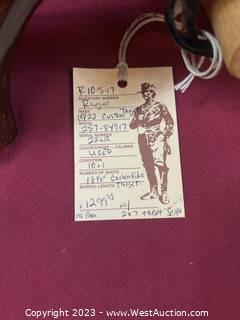 R10-5-17
INVENTORY NUMBER
Ruger
MAKE
10/22 Custom Target
MODEL
257-84917
SERIAL NUMBER
22LR
GAUGE/CHOKE - CALIBER
USED
CONDITION
10+1
NUMBER OF SHOTS
18½" Carbon Fibre
BARREL LENGTH TARGET
$1299 w/
No Box 2x7 TARGET Scope
Copyright © 2023 - www.WestAuction.com